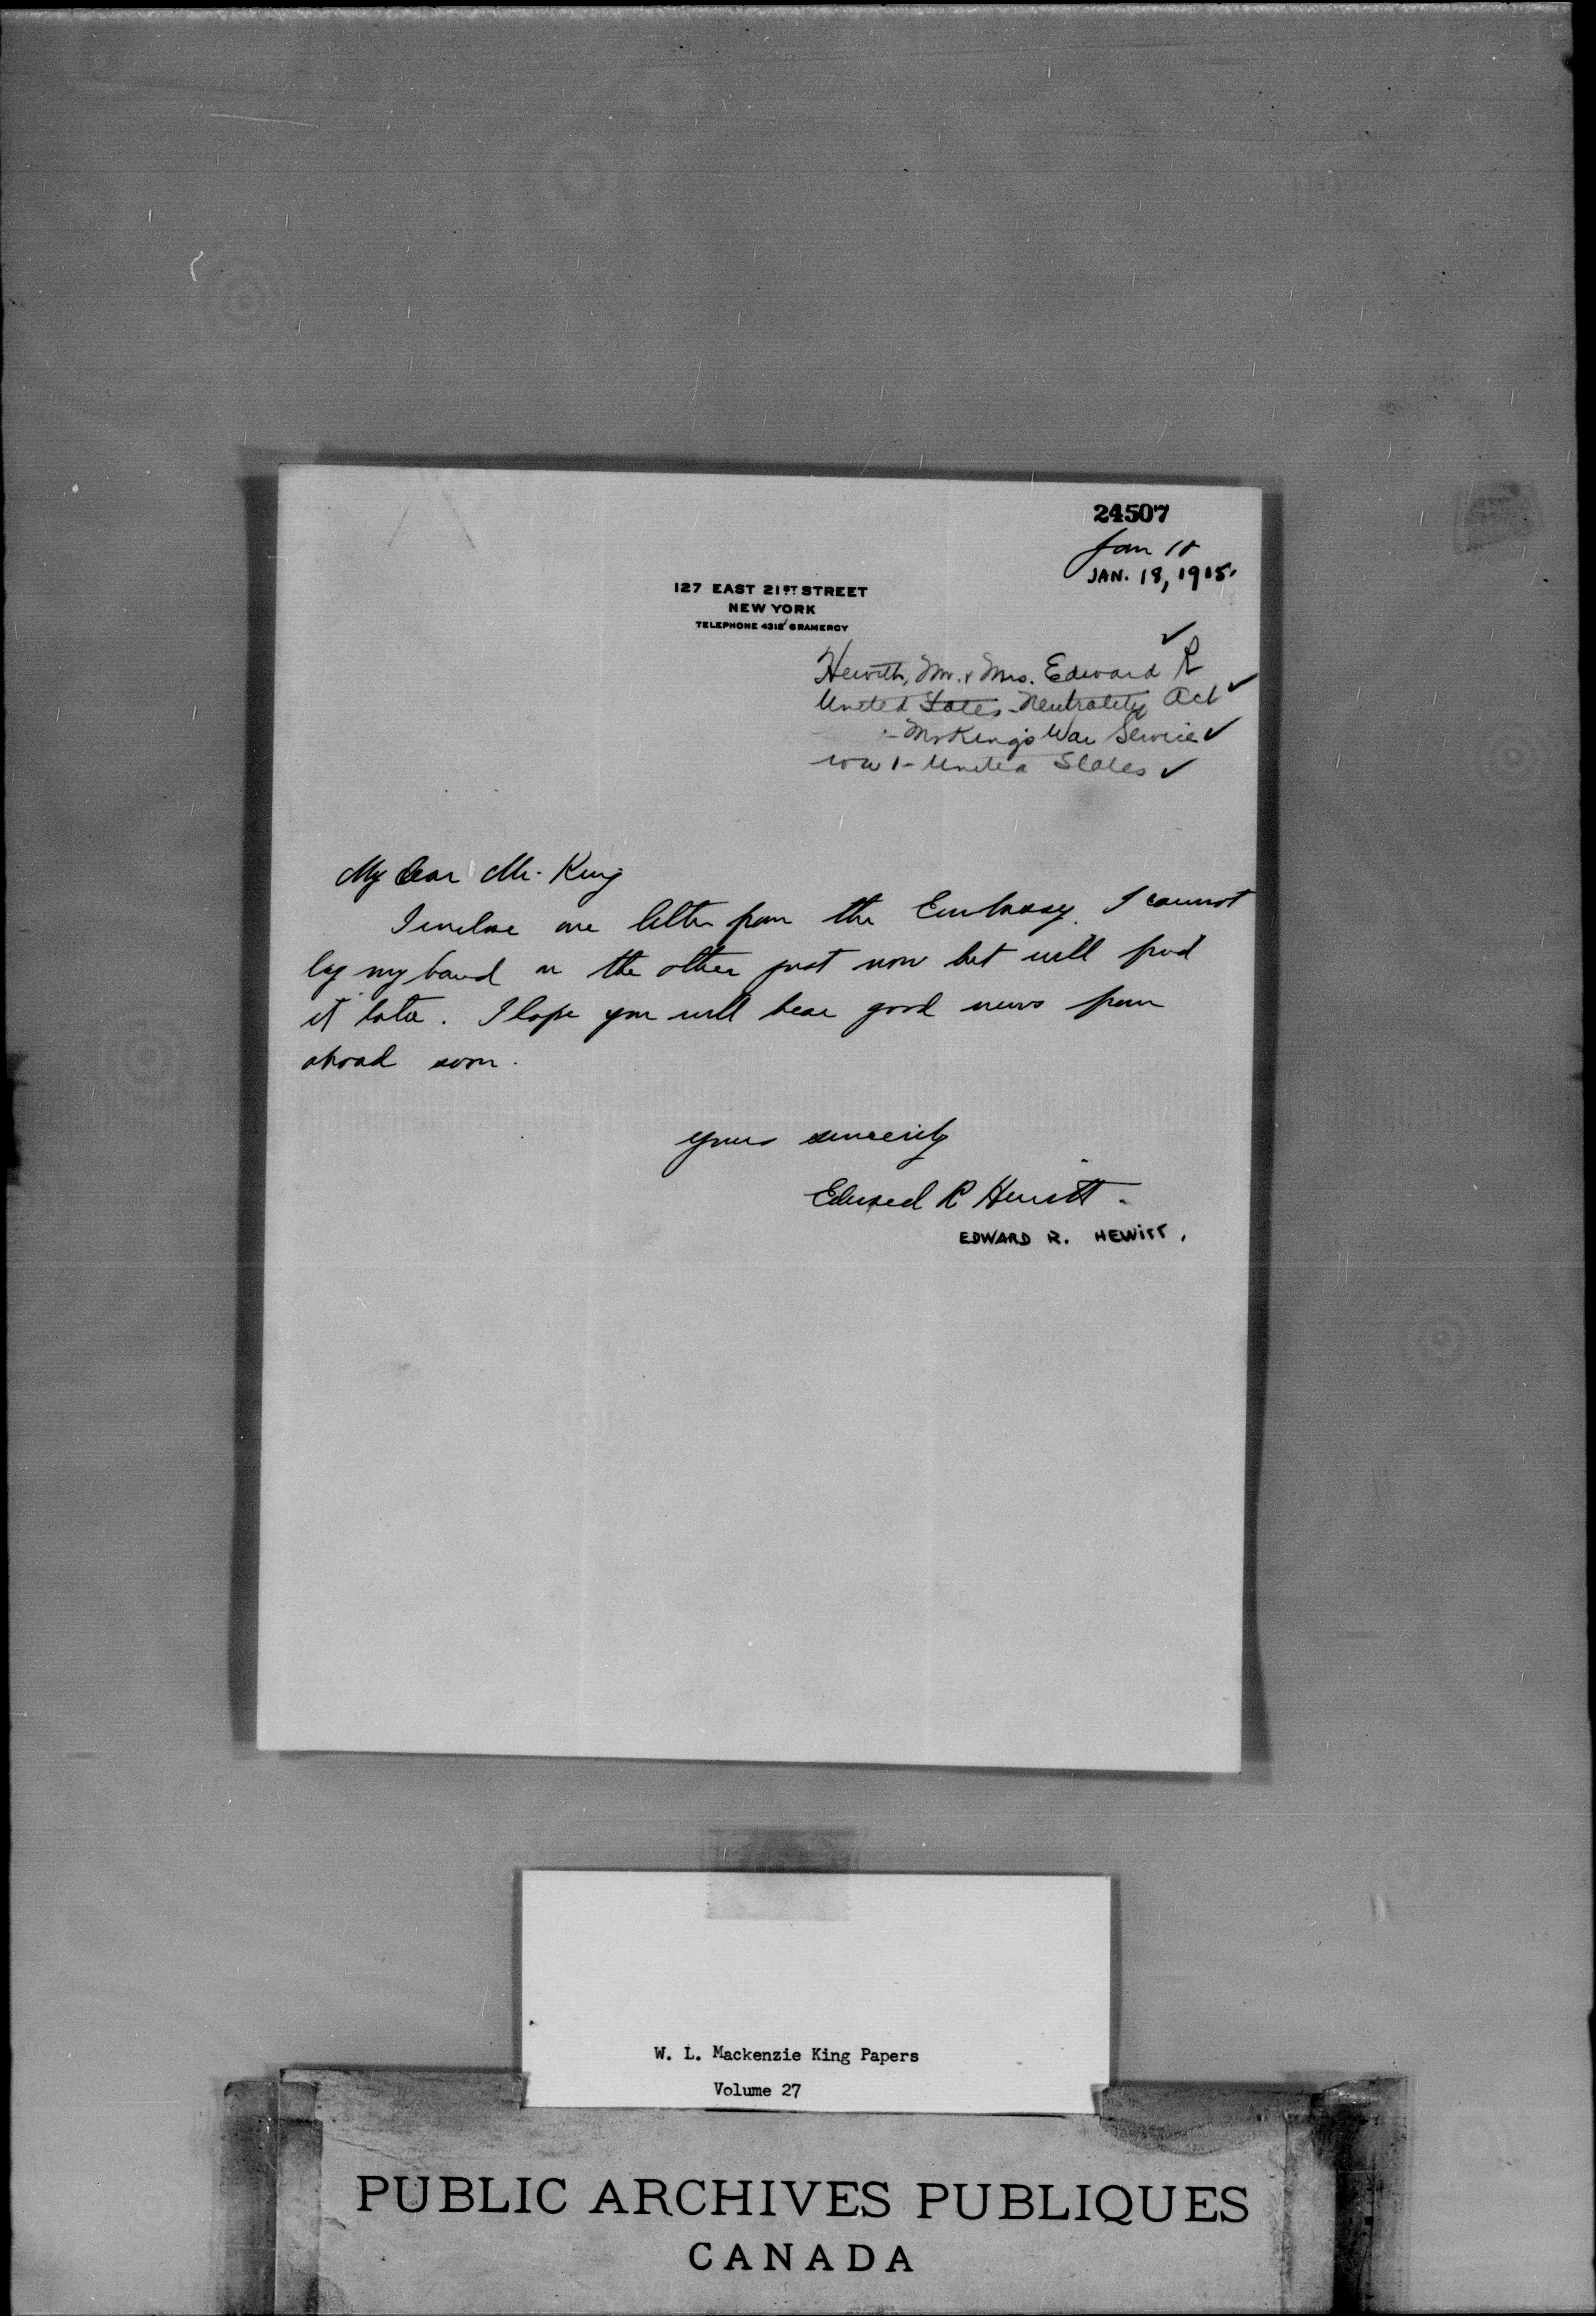 24507
Jan 18
JAN. 18, 1915.
127 EAST 21ST STREET
NEW YORK
TELEPHONE 4312 GRAMERCY
Hewitt, Mr. & Mrs. Edward R
United States Neutrality Act
- Mr King's War Service
WW 1 - United States
My dear Mr. King
I enclose one letter from the Embassy. I cannot
lay my hand on the other just now but will find
it later. I hope you will hear good news from
abroad soon.
Yours sincerely
Edward R Hewitt.
EDWARD R. HEWITT.
W. L. Mackenzie King Papers
Volume 27
PUBLIC ARCHIVES PUBLIQUES
CANADA